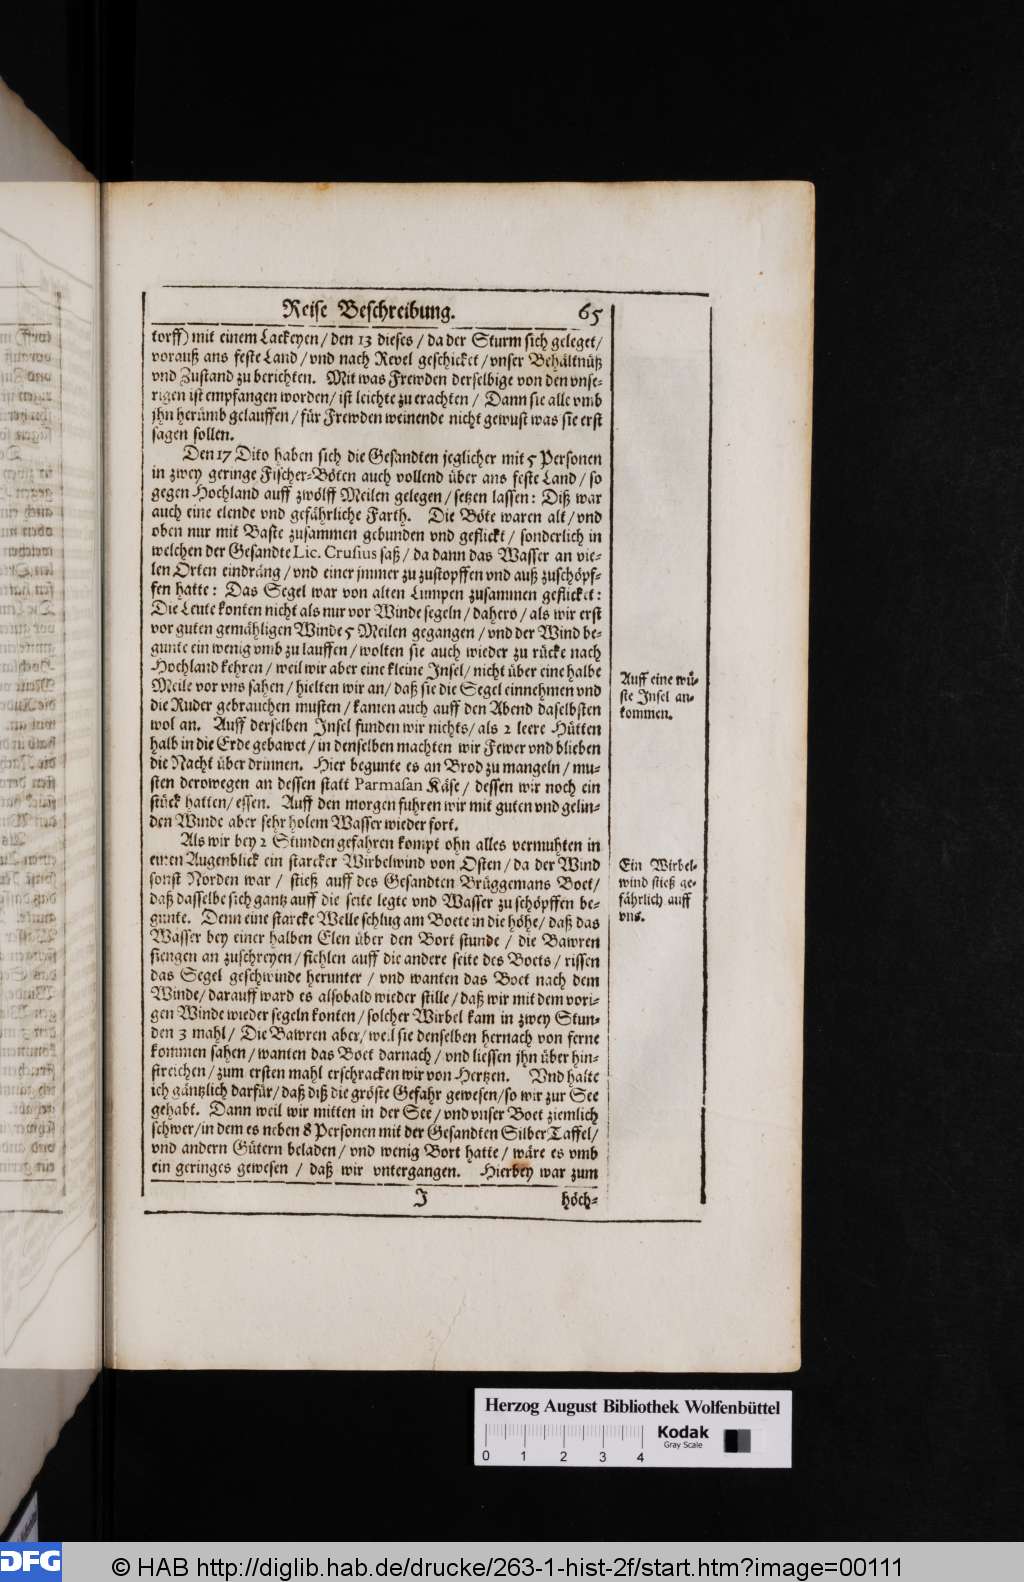 Reise Beschreibung. 65
torff) mit einem Lackeyen / den 13 dieses / da der Sturm sich geleget /
vorauß ans feste Land / vnd nach Revel geschicket / vnser Behältnüß
vnd Zustand zu berichten. Mit was Frewden derselbige von den vnse-
rigen ist empfangen worden / ist leichte zu erachten / Dann sie alle vmb
jhn herümb gelauffen / für Frewden weinende nicht gewust was sie erst
sagen sollen.
Den 17 Dito haben sich die Gesandten jeglicher mit 5 Personen
in zwey geringe Fischer-Böten auch vollend über ans feste Land / so
gegen Hochland auff zwölff Meilen gelegen / setzen lassen: Diß war
auch eine elende vnd gefährliche Farth. Die Böte waren alt / vnd
oben nur mit Baste zusammen gebunden vnd geflickt / sonderlich in
welchen der Gesandte Lic. Crusius saß / da dann das Wasser an vie-
len Orten eindrang / vnd einer jmmer zu zustopffen vnd auß zuschöpf-
fen hatte: Das Segel war von alten Lumpen zusammen geflicket:
Die Leute konten nicht als nur vor Winde segeln / dahero / als wir erst
vor guten gemähligen Winde 5 Meilen gegangen / vnd der Wind be-
gunte ein wenig vmb zu lauffen / wolten sie auch wieder zu rücke nach
Hochland kehren / weil wir aber eine kleine Jnsel / nicht über eine halbe
Meile vor vns sahen / hielten wir an / daß sie die Segel einnehmen vnd
die Ruder gebrauchen musten / kamen auch auff den Abend daselbsten
wol an. Auff derselben Jnsel funden wir nichts / als 2 leere Hütten
halb in die Erde gebawet / in denselben machten wir Fewer vnd blieben
die Nacht über drinnen. Hier begunte es an Brod zu mangeln / mu-
sten derowegen an dessen statt Parmasan Käse / dessen wir noch ein
stück hatten / essen. Auff den morgen fuhren wir mit guten vnd gelin-
den Winde aber sehr holem Wasser wieder fort.
Als wir bey 2 Stunden gefahren kompt ohn alles vermuhten in
einen Augenblick ein starcker Wirbelwind von Osten / da der Wind
sonst Norden war / stieß auff des Gesandten Brüggemans Boet /
daß dasselbe sich gantz auff die seite legte vnd Wasser zu schöpffen be-
gunte. Denn eine starcke Welle schlug am Boete in die höhe / daß das
Wasser bey einer halben Elen über den Bort stunde / die Bawren
fiengen an zuschreyen / fiehlen auff die andere seite des Boets / rissen
das Segel geschwinde herunter / vnd wanten das Boet nach dem
Winde / darauff ward es alsobald wieder stille / daß wir mit dem vori-
gen Winde wieder segeln konten / solcher Wirbel kam in zwey Stun-
den 3 mahl / Die Bawren aber / weil sie denselben hernach von ferne
kommen sahen / wanten das Boet darnach / vnd liessen jhn über hin-
streichen / zum ersten mahl erschracken wir von Hertzen. Vnd halte
ich gäntzlich darfür / daß diß die gröste Gefahr gewesen / so wir zur See
gehabt. Dann weil wir mitten in der See / vnd vnser Boet ziemlich
schwer / in dem es neben 8 Personen mit der Gesandten Silber Taffel /
vnd andern Gütern beladen / vnd wenig Bort hatte / wäre es vmb
ein geringes gewesen / daß wir vntergangen. Hierbey war zum
J höch-
Auff eine wü-
ste Jnsel an-
kommen.
Ein Wirbel-
wind stieß ge-
fährlich auff
vns.
Herzog August Bibliothek Wolfenbüttel
Kodak
Gray Scale
0 1 2 3 4
DFG © HAB http://diglib.hab.de/drucke/263-1-hist-2f/start.htm?image=00111